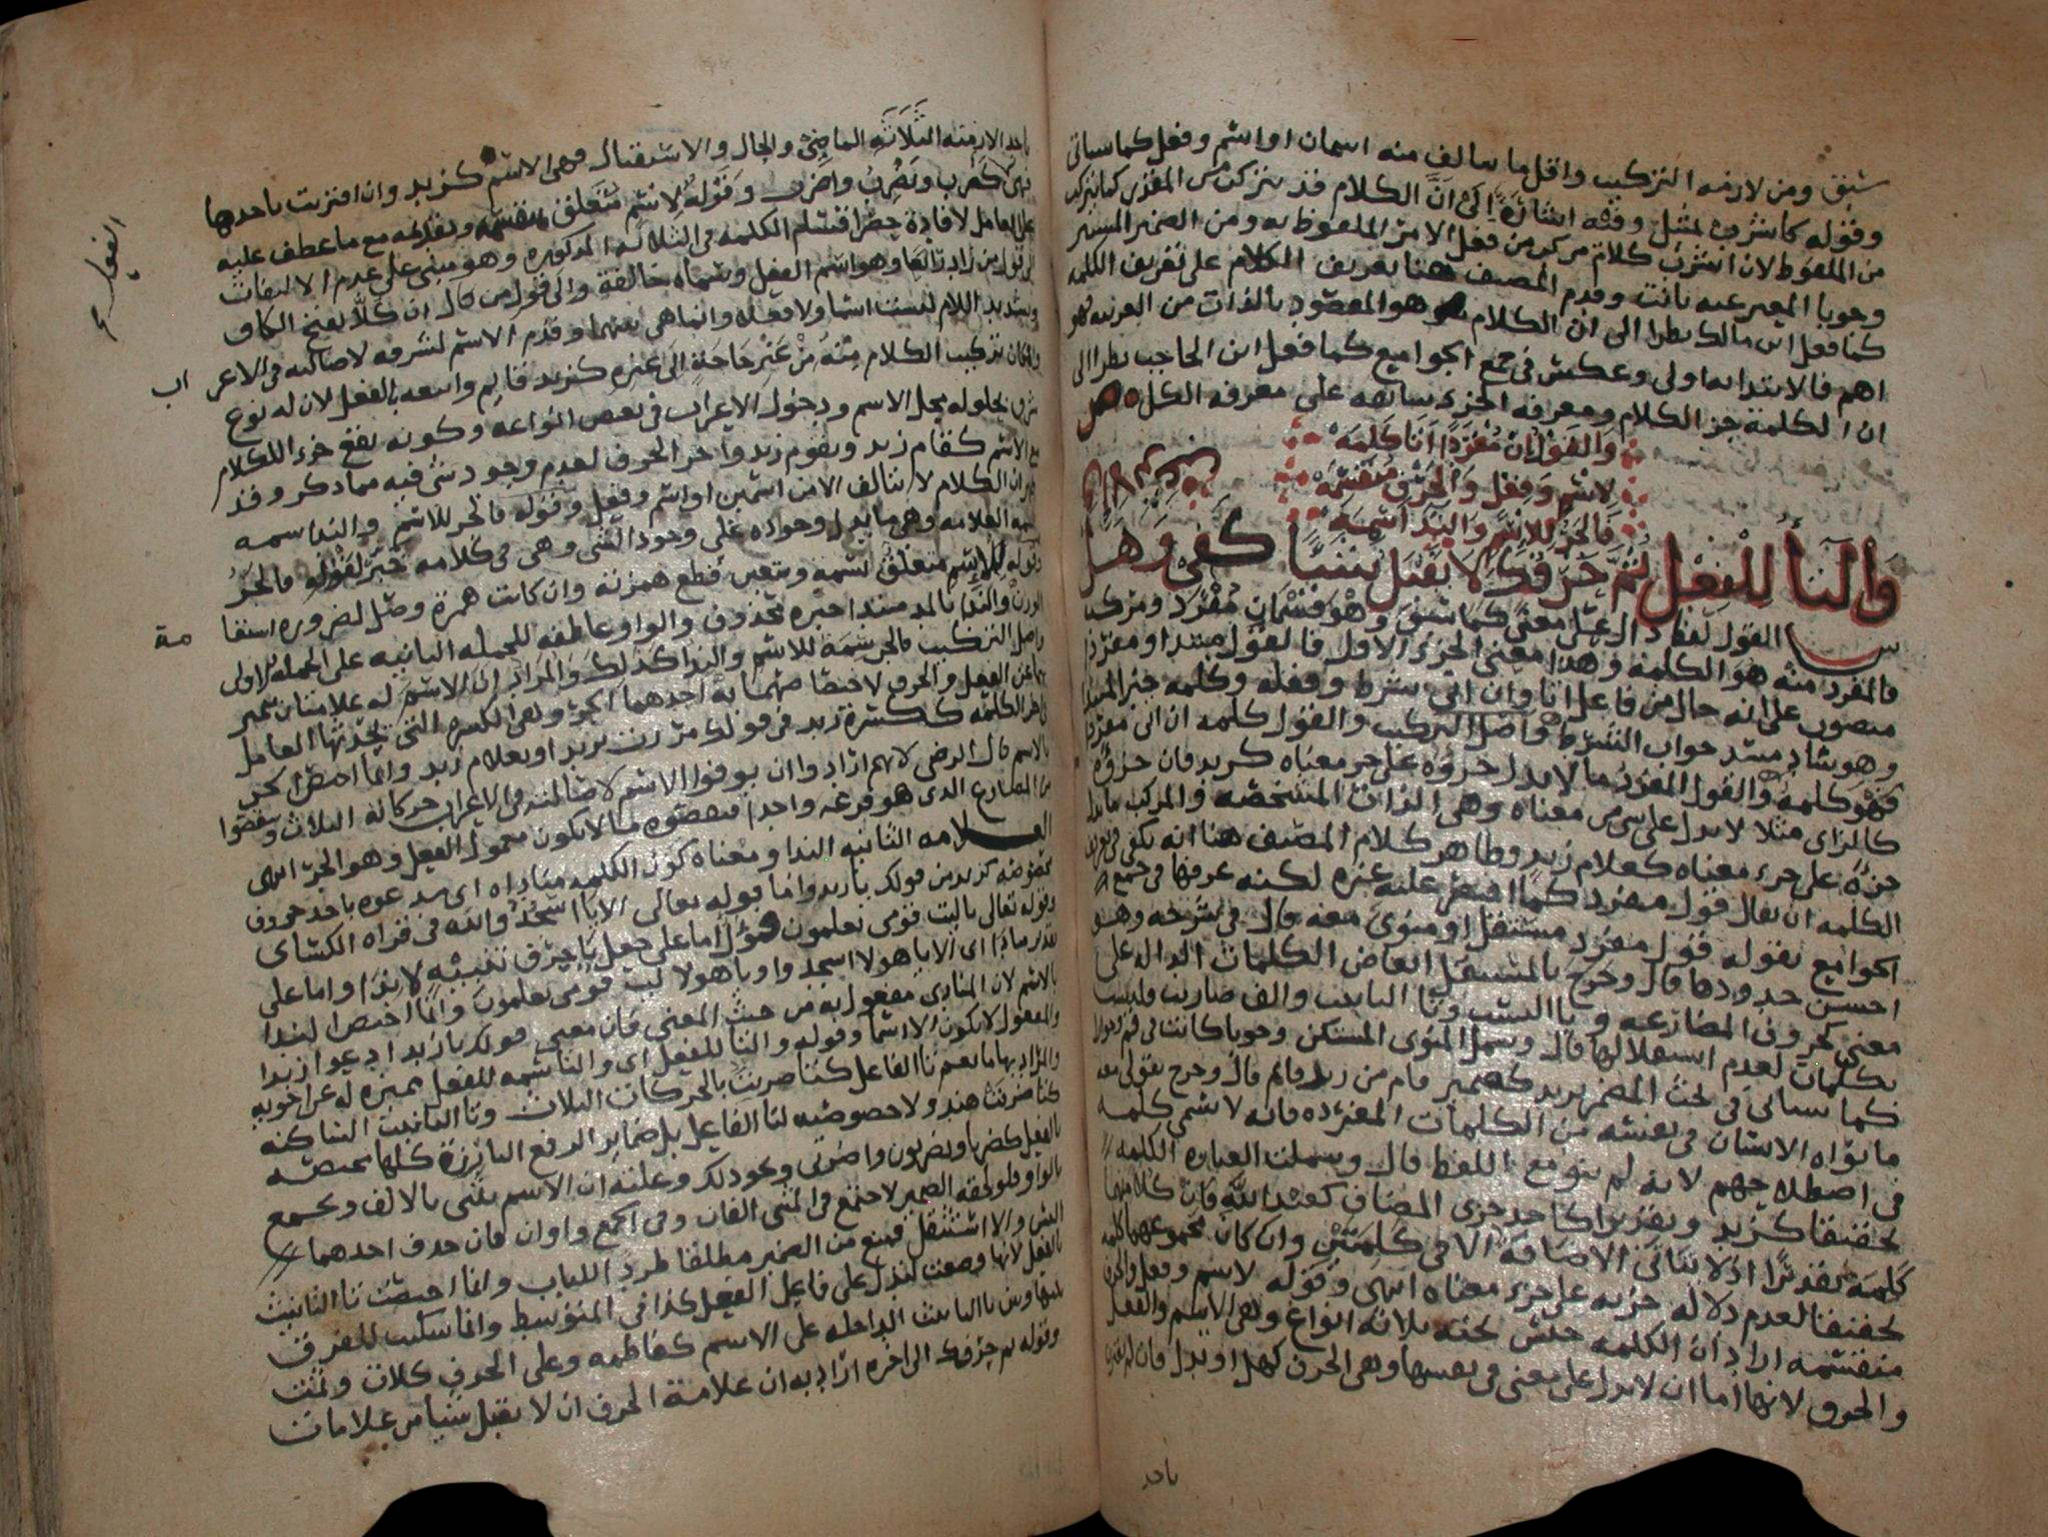 سبق ومن لازمه التركيب واقل ما يتالف منه اسمان او اسم وفعل كما سياتي
وقوله كاشرف لمثل وفيه اشارة الى ان الكلام قد يتركب من المقدر كما يتركب
من الملفوظ لان اشرف كلام مركب من فعل الامر الملفوظ به ومن الضمير المستتر
وجوبا المعبر عنه بانت وقدم المصنف هنا تعريف الكلام على تعريف الكلمة
كما فعل ابن مالك نظرا الى ان الكلام هو المقصود بالذات من العربيه فهو
اهم فالابتدا به اولى وعكس في جمع الجوامع كما فعل ابن الحاجب نظرا الى
ان الكلمة جز الكلام ومعرفه الجزء سابقه على معرفه الكل ص
والقول ان مفردا انا كلمه
لاسم وفعل والحرف منقسمه
فالجر للاسم والندا سمه
والتا للفعل ثم حرفك لا يقبل شيئا كفي وهل
ش القول لفظ دال على معنى كما سبق وهو قسمان مفرد ومركب
فالمفرد منه هو الكلمه وهذا معنى الجزء الاول فالقول مبتدا ومفردا
منصوب على انه حال من فاعل اتا وان اتى شرط وفعله وكلمه خبر المبتدا
وهو ساد مسد جواب الشرط واصل التركيب والقول كلمه ان اتى مفردا
فهو كلمة والقول المفرد ما لا يدل جزؤه على جزء معناه كزيد فان جزؤه
كالزاى مثلا لا يدل على شي من معناه وهى الذات المشخصه والمركب ما يدل
جزؤه على جزء معناه كغلام زيد وظاهر كلام المصنف هنا انه يكفي في تعريف
الكلمه ان يقال قول مفرد كما اقتصر عليه غيره لكنه عرفها في جمع
الجوامع بقوله قول مفرد مستقل او منوى معه قال في شرحه وهو
احسن حدودها قال وخرج بالمستقل ابعاض الكلمات الداله على
معنى كحروف المضارعه ويا النسب وتا التانيث والف ضارب وليست
بكلمات لعدم استقلالها قال وشمل المنوى المستكن وجوبا كانت في قم او جوازا
كما سياتى في بحث المضمر يريد كضمير قام من زيد قام قال وخرج بقولى معه
ما نواه الانسان في نفسه من الكلمات المفرده فانه لا يسمى كلمه
في اصطلاحهم لانه لم ينو مع اللفظ قال وشملت العباره الكلمه
تحقيقا كزيد وتقديرا كاحد جزى المضاف كعبد الله فان كلا منهما
كلمة تقديرا اذ لا يتاتى الاضافة الا في كلمتين وان كان مجموعهما كلمه
تحقيقا لعدم دلاله جزيه على جزء معناه انتهى وقوله لاسم وفعل والحرف
منقسمه اراد ان الكلمه جنس تحته ثلاثه انواع وهى الاسم والفعل
والحرف لانها اما ان لا يدل على معنى في نفسها وهى الحرف كهل او يدل فان لم تقترن
باحد
باحد الازمنه الثلاثه الماضى والحال والاستقبال فهى الاسم كزيد وان اقترنت باحدها
فهى كضرب ويضرب واضرب وقوله لاسم متعلق بمنقسمه وتقديمه مع ما عطف عليه
على العامل لافادة حصر اقسام الكلمه في الثلاثه المذكوره وهو مبنى على عدم الالتفات
لقول من زاد رابعا وهو اسم الفعل وسماه خالفة والى قول من قال ان كلا بفتح الكاف
وتشديد اللام ليست اسما ولا فعلا وانما هى بينهما وقدم الاسم لشرفه لاصالته في الاعراب
ولامكان تركيب الكلام منه من غير حاجة الى غيره كزيد قايم واتبعه بالفعل لان له نوع
شرف لحلوله محل الاسم ودخول الاعراب في بعض انواعه وكونه يقع جزء الكلام
مع الاسم كقام زيد ويقوم زيد واخر الحرف لعدم وجود شى فيه مما ذكر وقد
ان الكلام لا يتالف الا من اسمين او اسم وفعل وقوله فالجر للاسم والندا سمه
سمه العلامه وهى ما يدل وجوده على وجود الشى وهى في كلامه خبر لقوله فالجر
وقوله للاسم متعلق بسمه ويتعين قطع همزته وان كانت همزة وصل لضروره استقامة
الوزن والندا بالمد مبتدا خبره محذوف والواو عاطفه للجمله الثانيه على الجمله الاولى
واصل التركيب فالجر سمة للاسم والندا كذلك والمراد ان الاسم له علامتان تميز
بهما عن الفعل والحرف لاختصاصهما به احدهما الجر وهى الكسره التى يحدثها العامل
في اخر الكلمه ككسرة زيد في قولك مررت بزيد او بغلام زيد وانما اختص الجر
بالاسم قال الرضى لانهم ارادوا ان يوفوا الاسم لاصالته في الاعراب حركاته الثلاث وينقصوا
من المضارع الذى هو فرعه واحدا فنقصوه ما لا يكون معمول الفعل وهو الجر انتهى
العلامه الثانيه الندا ومعناه كون الكلمه مناداه اى مدعوه باحد حروف
مخصوصه كزيد من قولك يا زيد واما قوله تعالى الا يا اسجدوا لله في قراه الكسائى
وقوله تعالى يا ليت قومى يعلمون فمؤول اما على جعل يا حرف تنبيه لا ندا واما على
تقدير منادا اى الا يا هولا اسجدوا ويا هولا ليت قومى يعلمون وانما اختص الندا
بالاسم لان المنادى مفعول به من حيث المعنى فان معنى قولك يا زيد ادعوا زيدا
والمفعول لا يكون الا اسما وقوله والتا للفعل اى والتا سمه للفعل مميزه له عن اخويه
والمراد بها ما يعم تا الفاعل كتا ضربت بالحركات الثلاث وتا التانيث الساكنه
كتا ضربت هند ولا خصوصيه لتا الفاعل بل ضماير الرفع البارزة كلها مختصه
بالفعل كضربا ويضربون واضربى ونحو ذلك وعلته ان الاسم يثنى بالالف ويجمع
بالواو فلو لحقه الضمير لاجتمع في المثنى الفان وفى الجمع واوان فان حذف احدهما
التبس والا استثقل فمنع من الضمير مطلقا طرد اللباب وانما اختصت تا التانيث
بالفعل لانها وضعت لتدل على فاعل الفعل كذا في المتوسط وانما سكنت للفرق
بينها وبين تا التانيث الداخله على الاسم كفاطمه وعلى الحرف كلات وثمت
وقوله ثم حرفك الى اخره اراد به ان علامة الحرف ان لا يقبل شيا من علامات